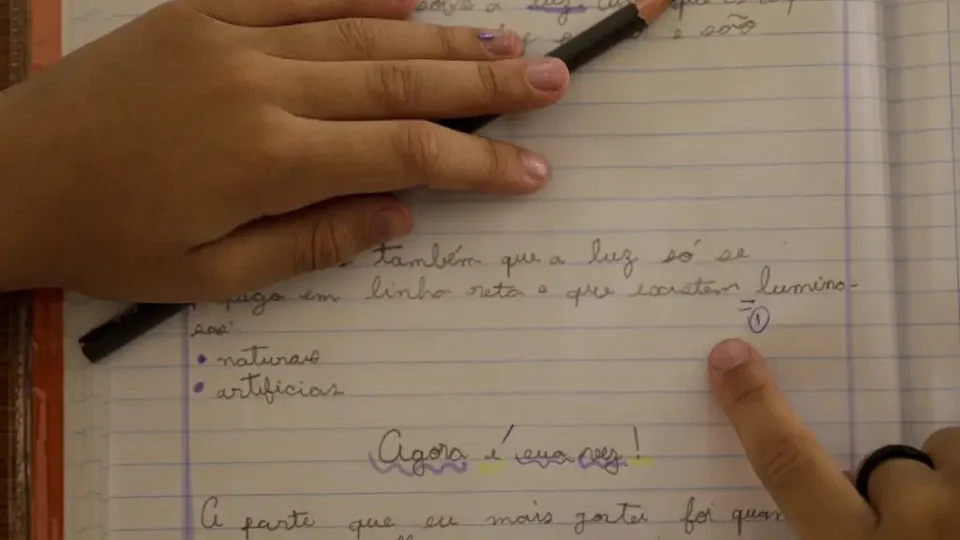 sobre a luz. que
e são
também que a luz só se
em linha reta e que existem lumino-
sas:
• naturais
• artificias
①
Agora é sua vez!
A parte que eu mais gostei foi quan